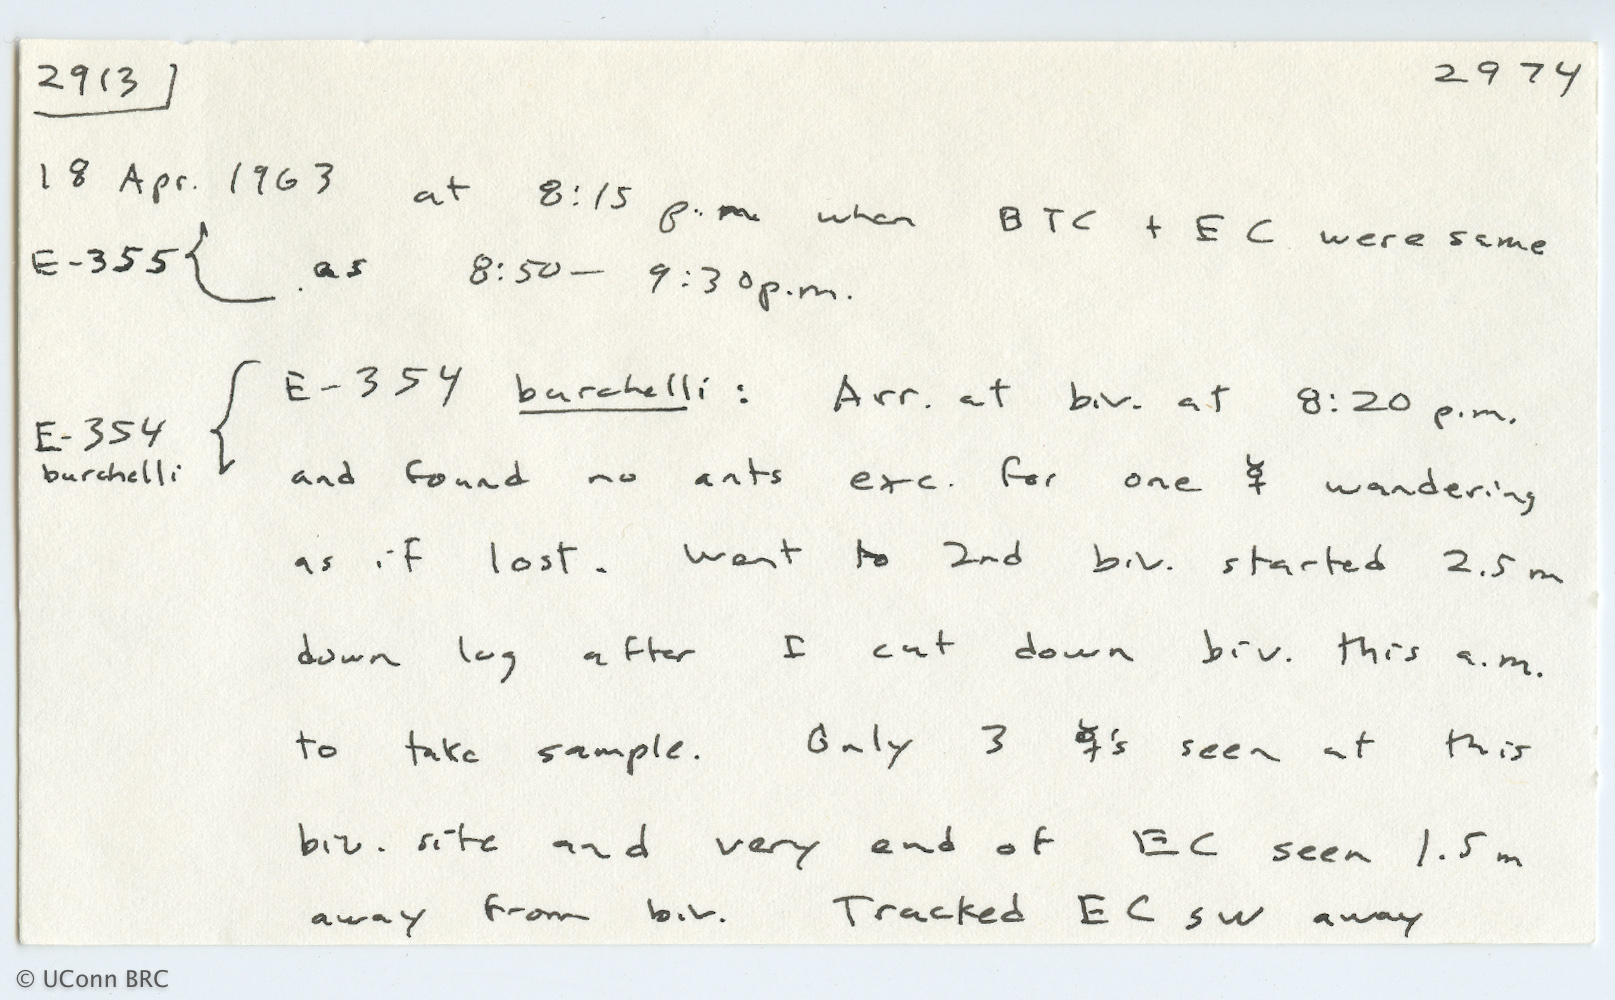 2913
2974
18 Apr. 1963 at 8:15 p.m. when BTC + EC were same
E-355 as 8:50 - 9:30 p.m.
E-354 burchelli : Arr. at biv. at 8:20 p.m.
E-354
burchelli
and found no ants exc. for one ☿ wandering
as if lost. Went to 2nd biv. started 2.5 m
down log after I cut down biv. this a.m.
to take sample. Only 3 ☿'s seen at this
biv. site and very end of EC seen 1.5 m
away from biv. Tracked EC SW away
© UConn BRC